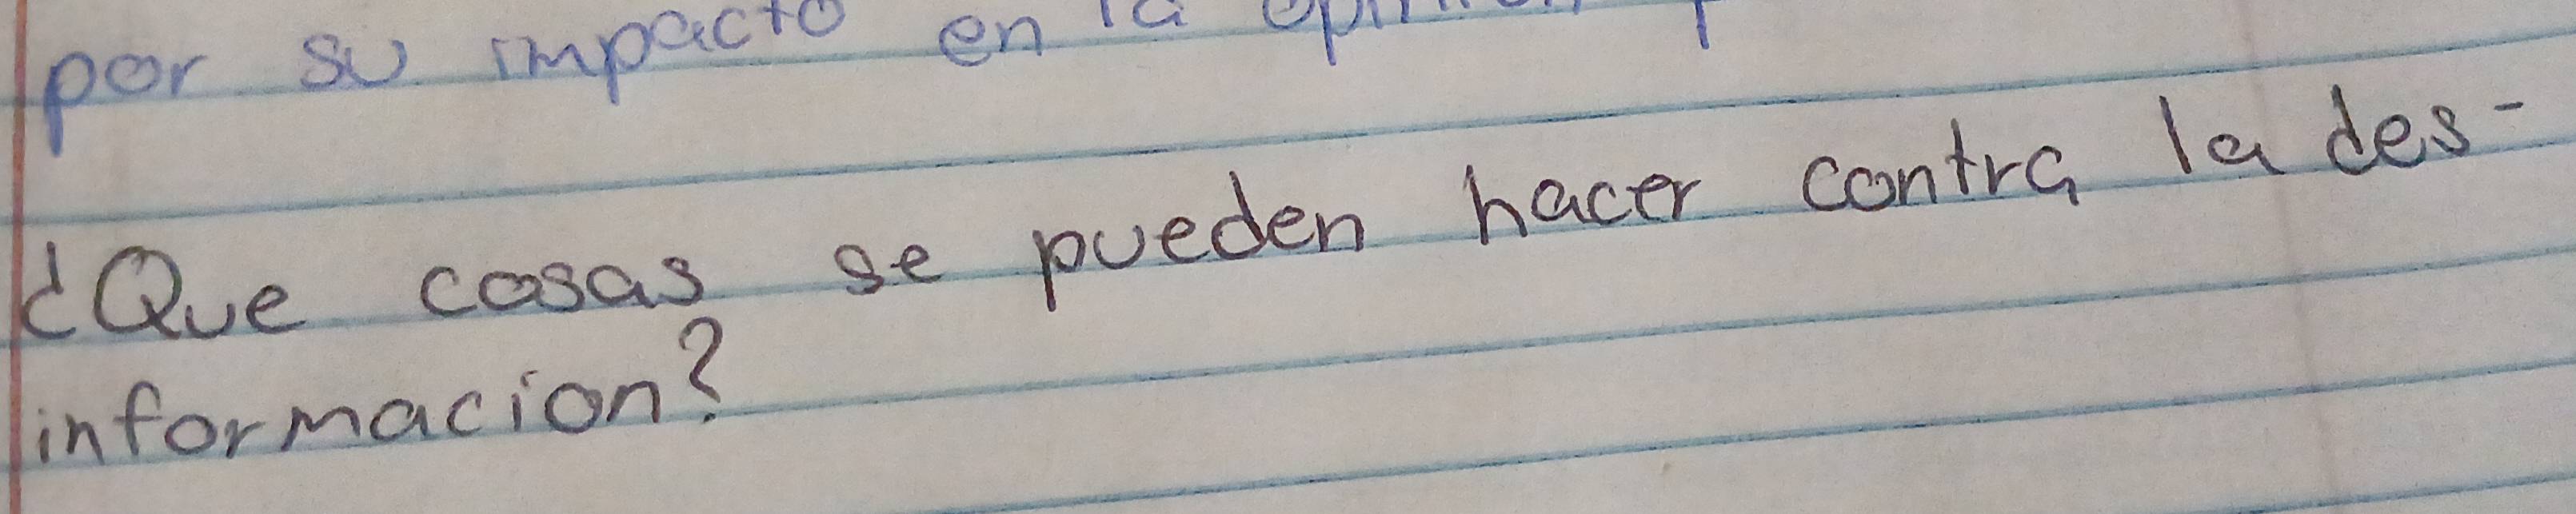 por su impacto en la
¿Que cosas se pueden hacer contra la des-
informacion?